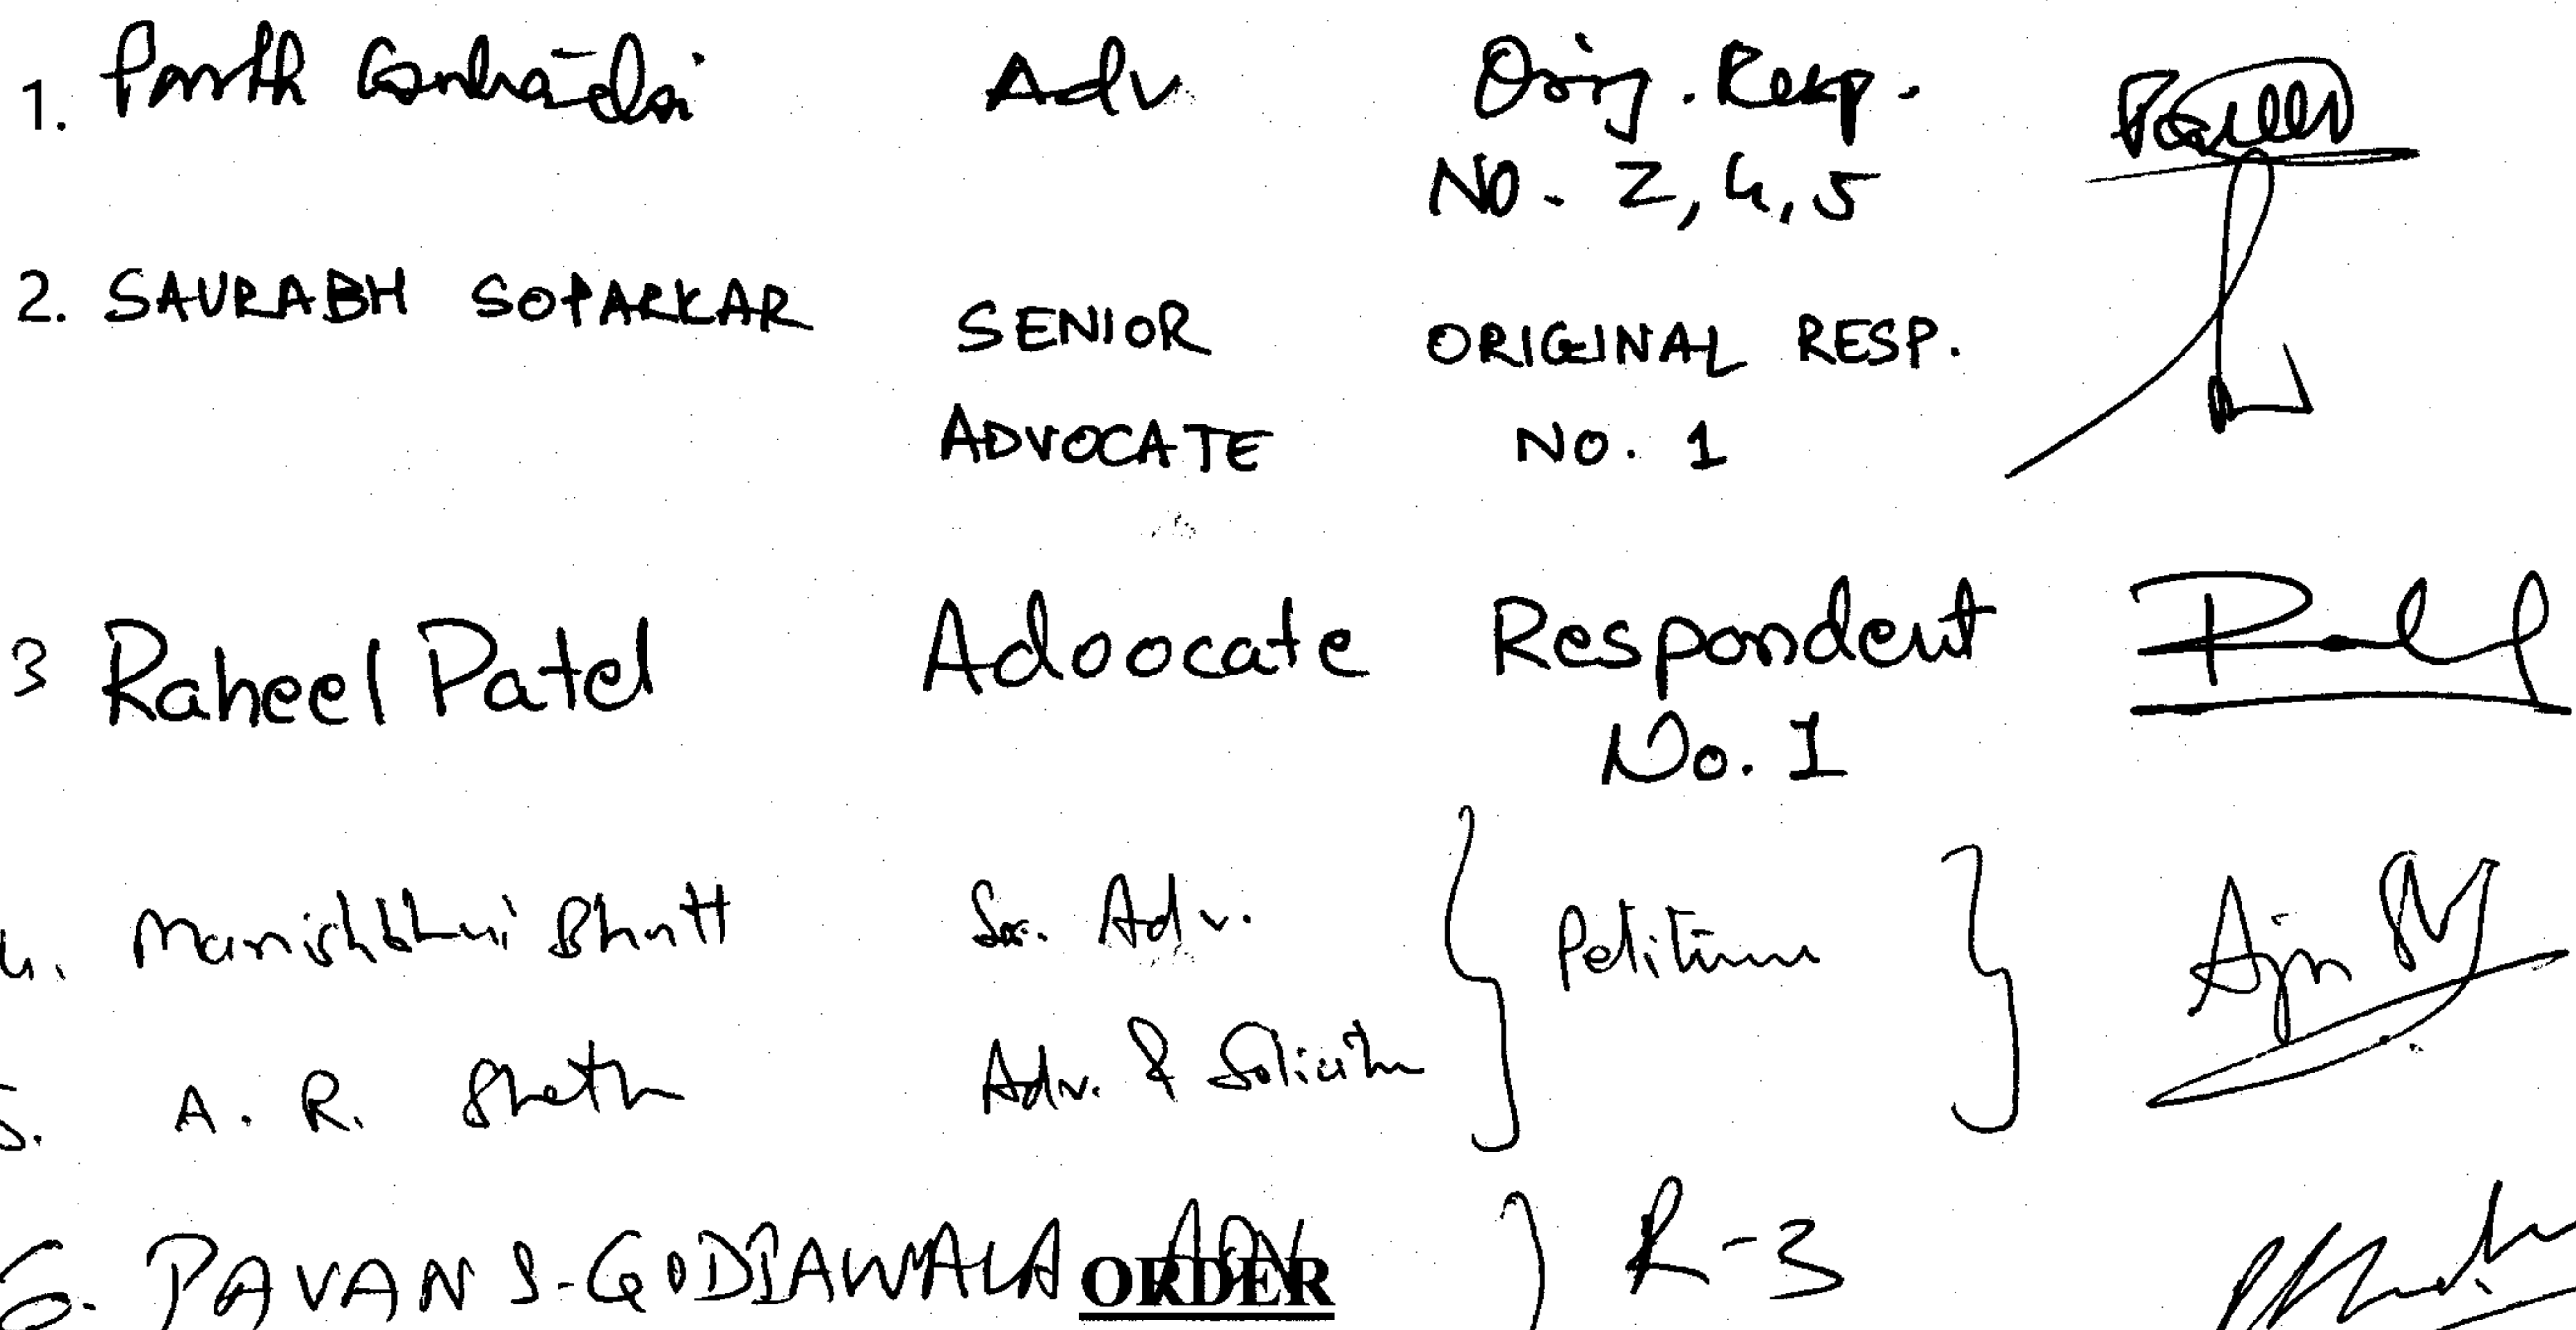 1. Parth Contractor Adv Orig. Resp.
No. 2, 4, 5
2. SAURABH SOPARKAR SENIOR ORIGINAL RESP.
ADVOCATE No. 1
3 Raheel Patel Advocate Respondent
No. 1
4. Manishbhai Bhatt Sr. Adv. Petitioner
5. A. R. Sheth Adv. & Solicitor
6. PAVAN S. GODIAWALA ADV R-3
ORDER